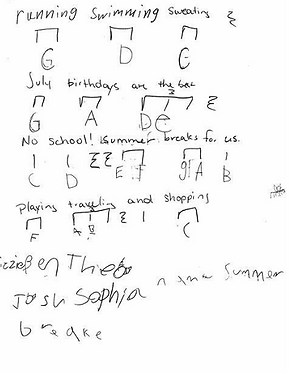 running Swimming Sweating
G D C
July birthdays are the bac
G A D C
No school! Summer breaks for us.
C D E F g A B
Playing traveling and shopping
F A B C
en Theo
Josh Sophia Summer
breake